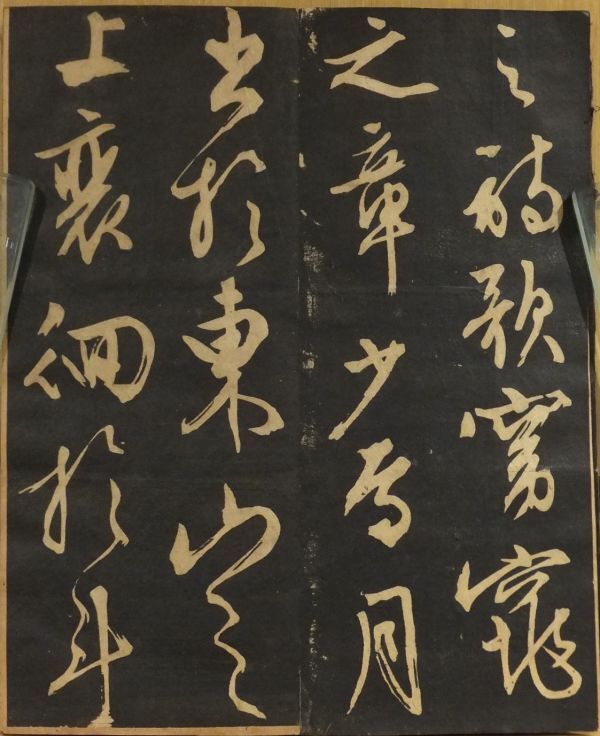 之詩歌窈窕
之章少焉月
出於東山之
上裵佪於斗